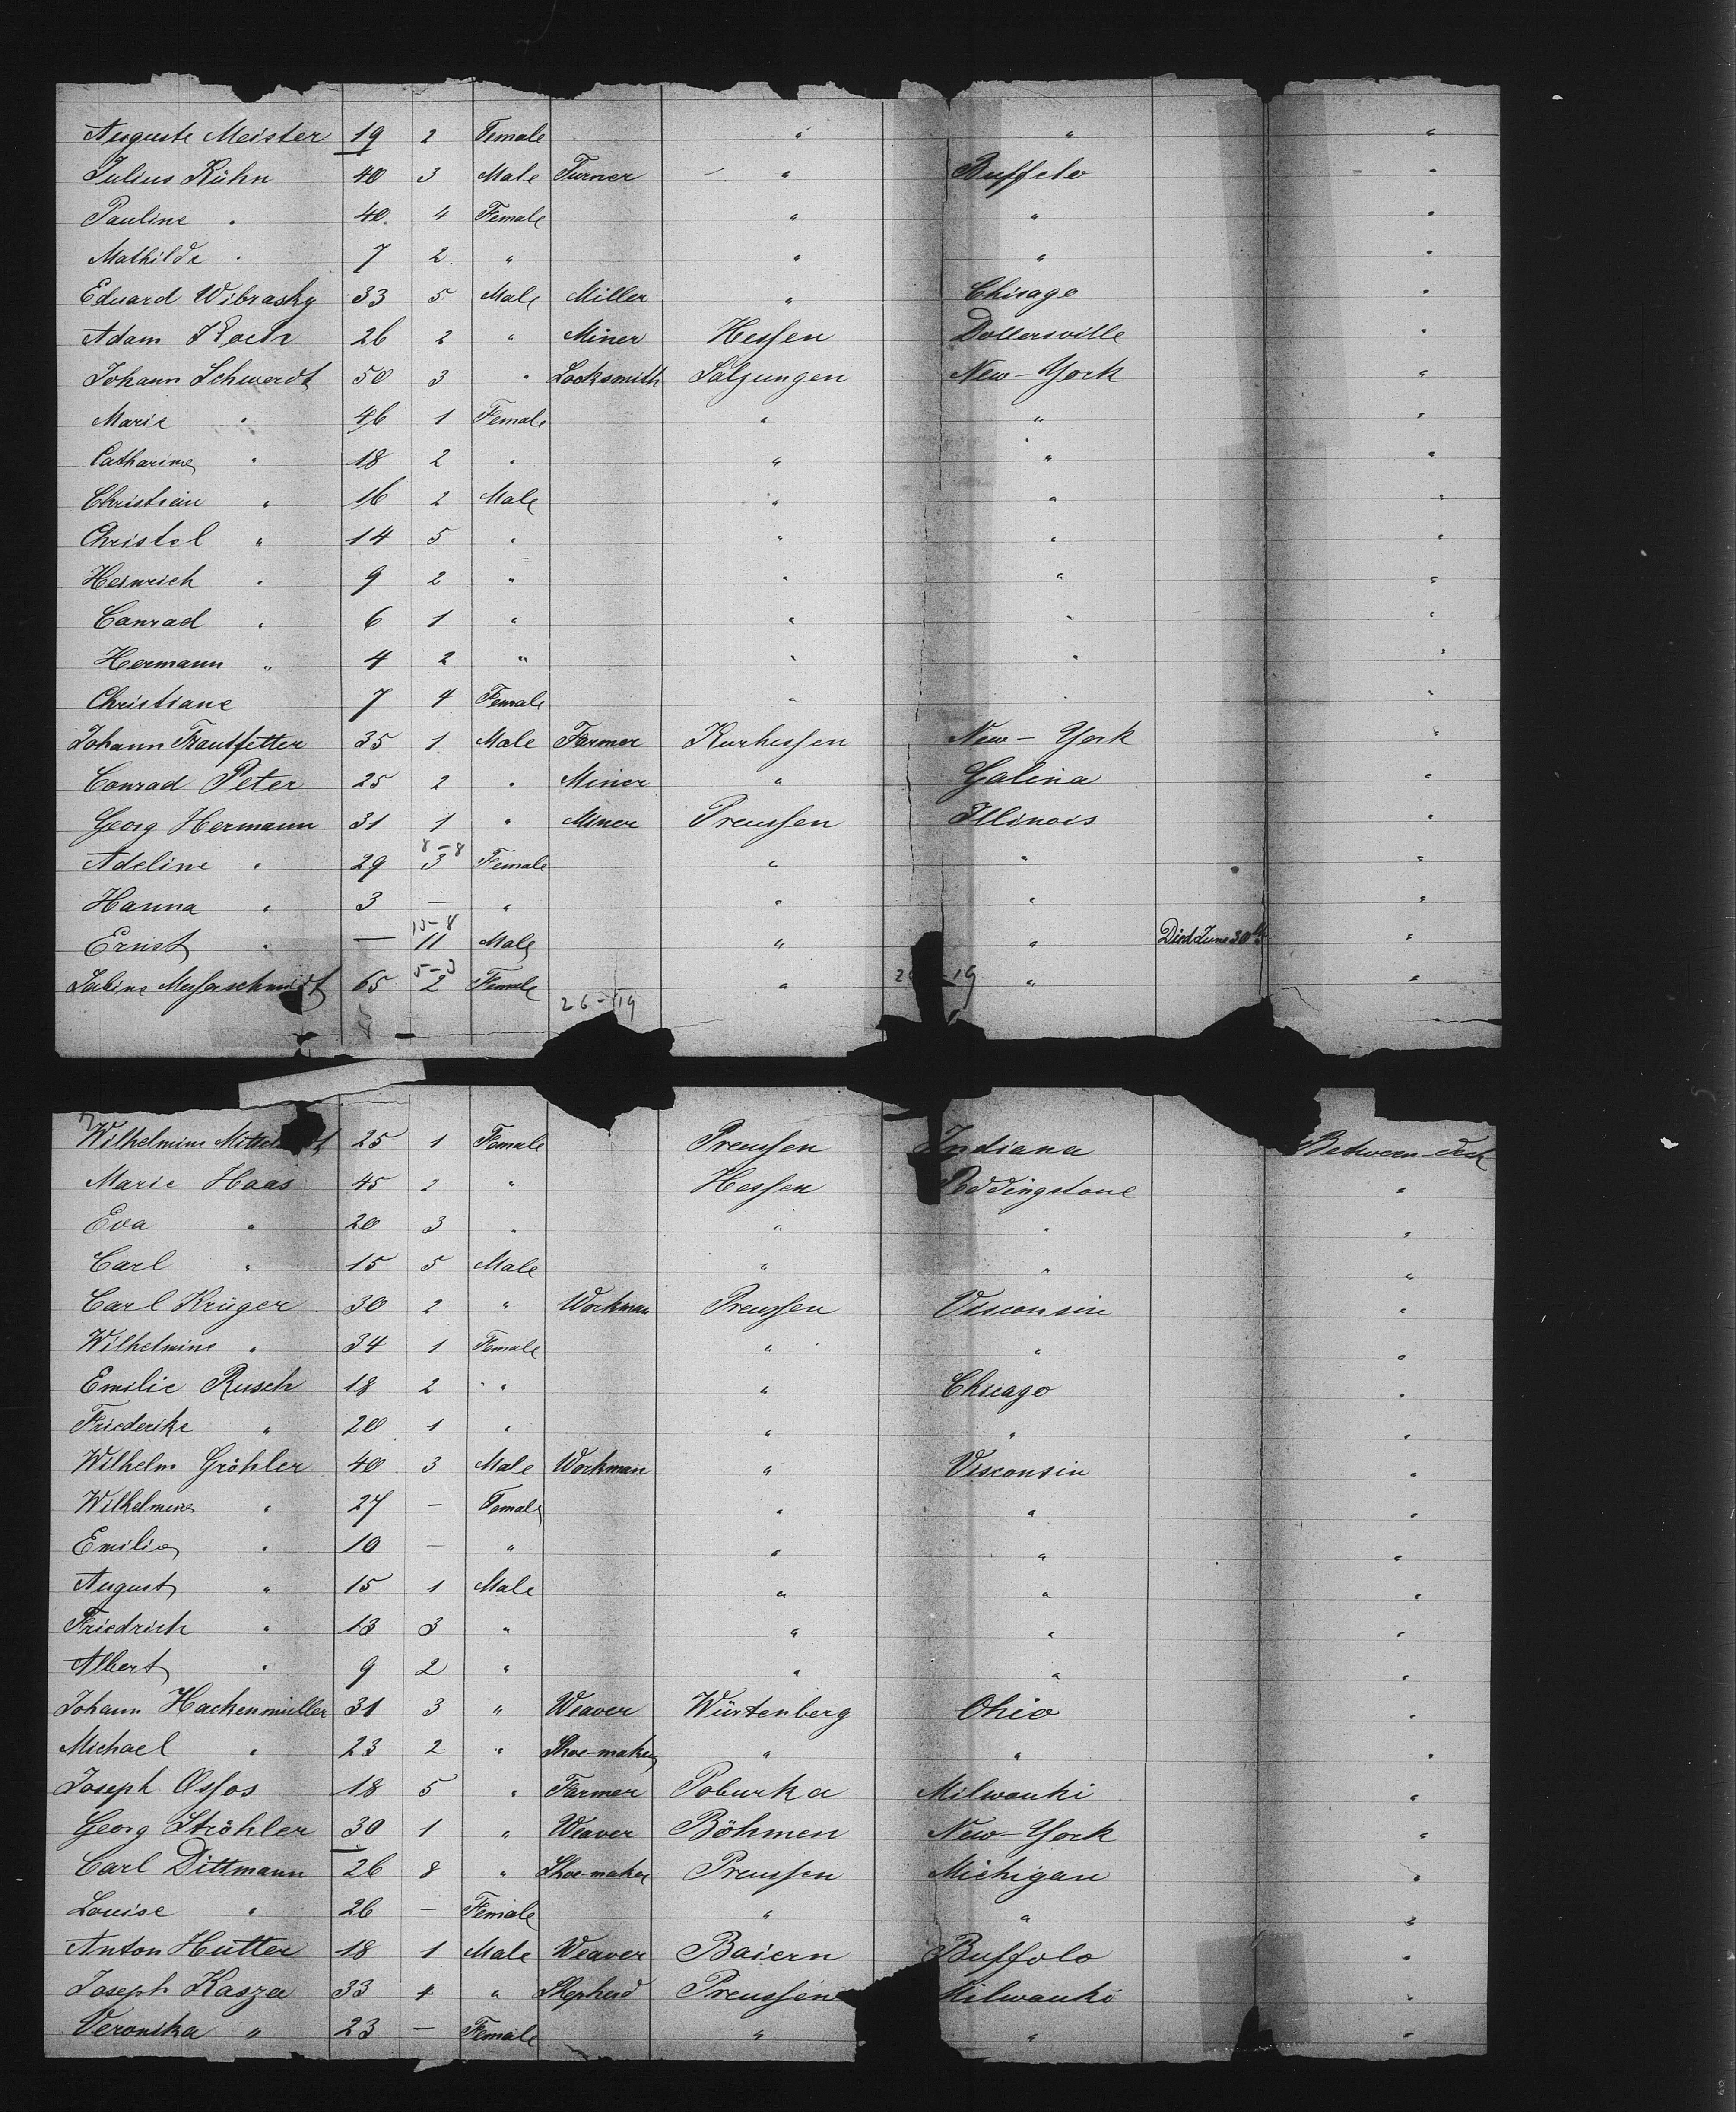 Auguste Meister 19 2 Female " " "
Julius Kühn 40 3 Male Turner " Buffelo "
Pauline " 40 4 Female " " "
Mathilde " 7 2 " " " "
Eduard Wibrasky 33 5 Male Miller " Chisago "
Adam Koch 26 2 " Miner Hessen Dollersville "
Johann Schwerdt 50 3 " Locksmith Salzungen New-York "
Marie " 46 1 Female " " "
Catharine " 18 2 " " " "
Christian " 16 2 Male " " "
Christel " 14 5 " " " "
Heinrich " 9 2 " " " "
Conrad " 6 1 " " " "
Hermann " 4 2 " " " "
Christiane 7 4 Female " " "
Johann Trautfetter 35 1 Male Farmer Kurhessen New-York "
Conrad Peter 25 2 " Miner " Galina "
Georg Hermann 31 1 " Miner Preussen Illinois "
8-8
Adeline " 29 3 Female " " "
Hanna " 3 — " " " "
15-8
Ernst " — 11 Male " " Died June 30th "
5-3
Sabine Messerschmidt 65 2 Female " " "
26-19 -19
Wilhelmine 25 1 Female Preussen Indiana Between-deck
Marie Haas 45 2 " Hessen Peddingstone "
Eva " 20 3 " " " "
Carl " 15 5 Male " " "
Carl Krüger 30 2 " Workman Preussen Visconsin "
Wilhelmine " 34 1 Female " " "
Emilie Rusch 18 2 " " Chicago "
Friederike " 20 1 " " " "
Wilhelm Gröhler 40 3 Male Workman " Visconsin "
Wilhelmine " 27 — Female " " "
Emilie " 10 — " " " "
August " 15 1 Male " " "
Friedrich " 13 3 " " " "
Albert " 9 2 " " " "
Johann Hackenmüller 31 3 " Weaver Würtenberg Ohio "
Michael " 23 2 " Shoe-maker " " "
Joseph Ossos 18 5 " Farmer Poburka Milwauki "
Georg Ströhler 30 1 " Weaver Böhmen New-York "
Carl Dittmann 26 8 " Shoe-maker Preussen Michigan "
Louise " 26 — Female " " "
Anton Hutter 18 1 Male Weaver Baiern Buffolo "
Joseph Kasza 33 4 " Shepherd Preussen Milwauki "
Veronika " 23 — Female " " "